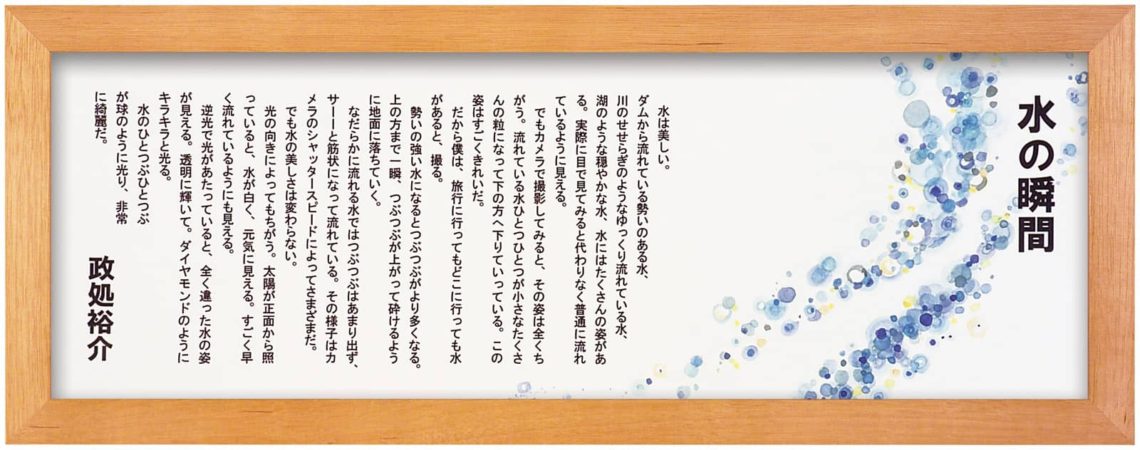 水の瞬間
水は美しい。
ダムから流れている勢いのある水、
川のせせらぎのようなゆっくり流れている水、
湖のような穏やかな水、水にはたくさんの姿があ
る。実際に目で見てみると代わりなく普通に流れ
ているように見える。
でもカメラで撮影してみると、その姿は全くち
がう。流れている水ひとつひとつが小さなたくさ
んの粒になって下の方へ下りていっている。この
姿はすごくきれいだ。
だから僕は、旅行に行ってもどこに行っても水
があると、撮る。
勢いの強い水になるとつぶつぶがより多くなる。
上の方まで一瞬、つぶつぶが上がって砕けるよう
に地面に落ちていく。
なだらかに流れる水ではつぶつぶはあまり出ず、
サーーと筋状になって流れている。その様子はカ
メラのシャッタースピードによってさまざまだ。
でも水の美しさは変わらない。
光の向きによってもちがう。太陽が正面から照
っていると、水が白く、元気に見える。すごく早
く流れているようにも見える。
逆光で光があたっていると、全く違った水の姿
が見える。透明に輝いて。ダイヤモンドのように
キラキラと光る。
水のひとつぶひとつぶ
が球のように光り、非常
に綺麗だ。
政処裕介